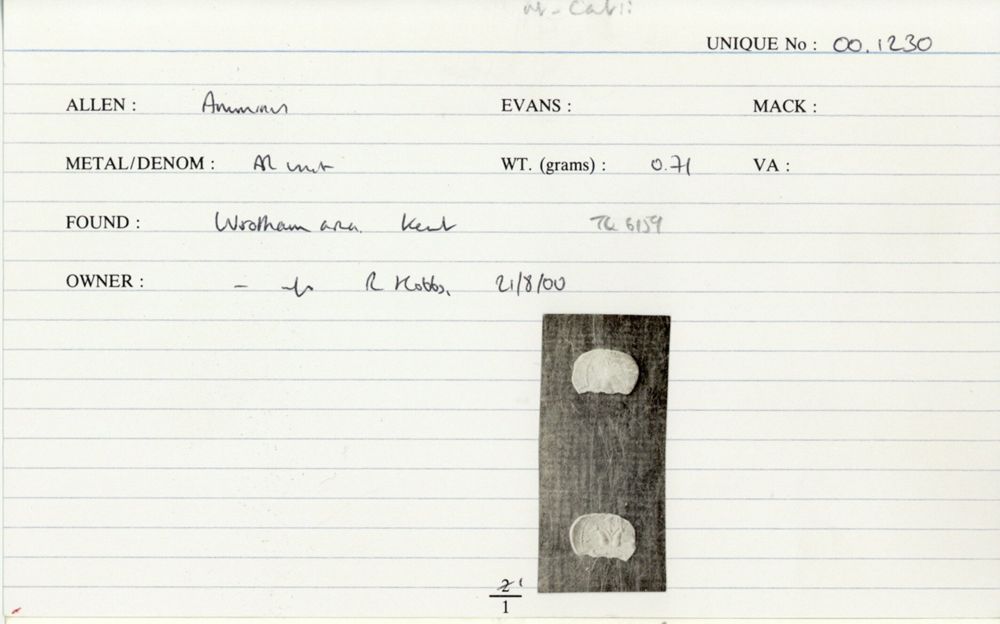 UNIQUE No : 00.1230
ALLEN : Amminus EVANS : MACK :
METAL/DENOM : AR unit WT. (grams) : 0.71 VA :
FOUND : Wrotham area. Kent TQ 6159
OWNER : – R Hobbs, 21/8/00
2 1
1